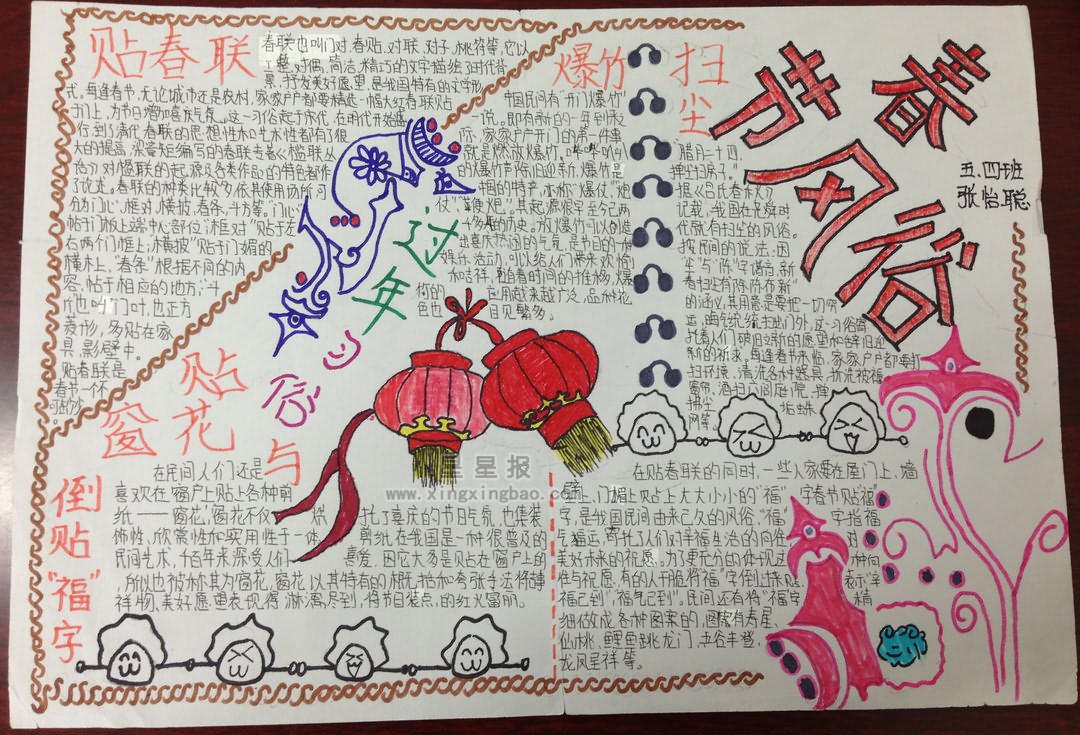 春
节风俗
五.四班
张怡聪
贴春联
春联也叫门对,春贴,对联,对子,桃符等,它以
工整对偶,简洁,精巧的文字描绘了时代背
景,抒发美好愿望,是我国特有的文学形
式。每逢春节,无论城市还是农村,家家户户都要精选一幅大红春联贴
于门上,为节日增加喜庆气氛。这一习俗起于宋代,在明代开始盛
行,到了清代,春联的思想性和艺术性都有了很
大的提高,梁章矩编写的春联专著《槛联丛
话》对楹联的起源及各类作品的特色都作
了论述。春联的种类比较多,依其使用场所,可
分为门心,框对,横披,春条,斗方等。“门心”
帖于门板上端中心部位;“框对”贴于左
右两个门框上;“横披”贴于门媚的
横木上,“春条”根据不同的内
容,帖于相应的地方;“斗
斤”也叫“门叶”,也正方
菱形,多贴在家
具,影壁中。
贴春联是
春节一个怀
爆竹
中国民间有“开门爆竹”
一说。即在新的一年到来
际,家家户户开门的第一件事
就是燃放爆竹,
的爆竹声除旧迎新。爆竹是
国的特产,亦称“爆仗”“炮
仗”“鞭炮”。其起源很早,至今已两
千多年的历史。放爆竹可以创造
出喜庆热闹的气氛,是节日的一种
娱乐活动,可以给人们带来欢愉
和吉祥,随着时间的推移,爆
竹的应用越来越广泛,品种花
色也日见繁多。
扫尘
“腊月二十四,
掸尘扫房子”。
据《吕氏春秋》
记载,我国在尧舜时
代就有扫尘的风俗。
按民间的说法:因
“尘”与“陈”字谐音,新
春扫尘有“除陈布新”
的涵义,其用意是要把一切穷
运,晦气统统扫出门外。这一习俗寄
托着人们破旧立新的愿望和辞旧迎
新的祈求。每逢春节来临,家家户户都要打
扫环境,清洗各种器具,拆洗被褥
窗帘,洒扫六闾庭院,掸
拂尘垢蛛
网等。
过年
贴窗花与
倒贴“福”字
在民间人们还是
喜欢在窗户上贴上各种剪
纸——窗花,“窗花”不仅烘托了喜庆的节日气氛,也集装
饰性,欣赏性和实用性于一体,剪纸在我国是一种很普及的
民间艺术,千百年来深受人们喜爱,因它大多是贴在窗户上的
,所以也被称其为“窗花”。窗花以其特有的概括和夸张手法将薄
祥物、美好愿望表现得淋漓尽到,将节日装点的红火富丽。
在贴春联的同时,一些人家要在屋门上,墙
壁上,门楣上贴上大大小小的“福”字春节贴“福”
字,是我国民间由来已久的风俗。“福”字指福
气福运,寄托了人们对幸福生活的向往,对
美好未来的祝愿。为了更充分的体现这种向
往与祝愿,有的人干脆将“福”字倒过来贴,表示“幸
福已到”,“福气已到”。民间还有将“福”字精
细做成各种图案的,图案有寿星、
仙桃,鲤鱼跳龙门,五谷丰登,
龙凤呈祥等。
星星报
www.xingxingbao.com